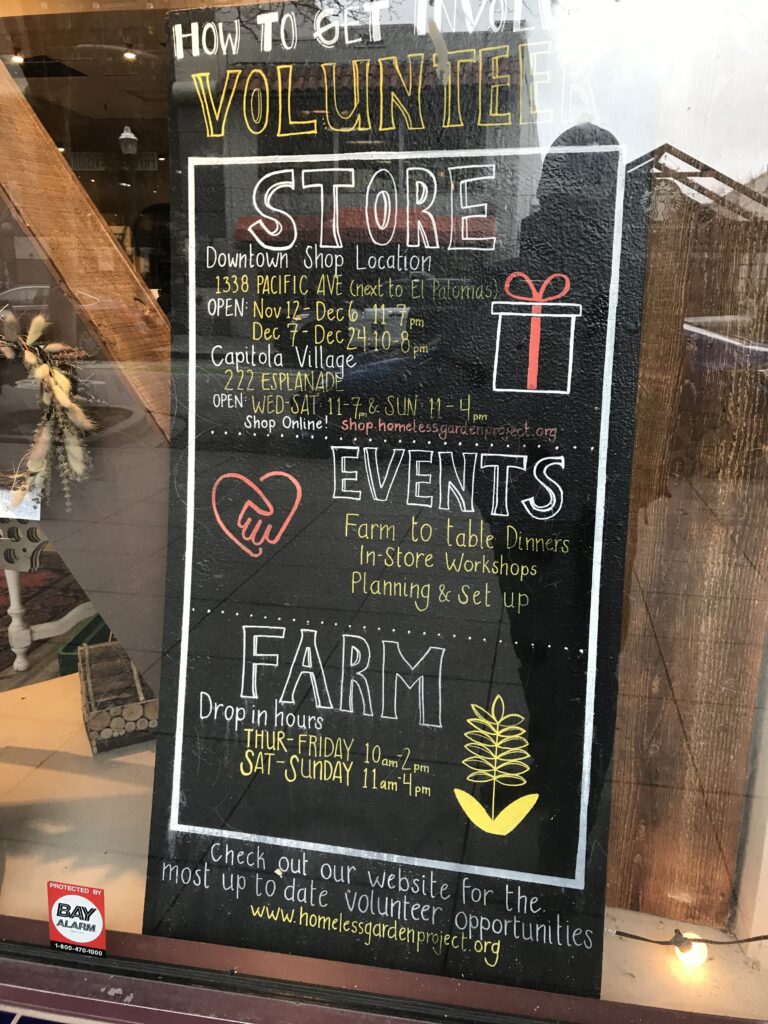 HOW TO GET INVOLV
VOLUNTEER
STORE
Downtown Shop Location
1338 PACIFIC AVE (next to El Palomas)
OPEN: Nov 12 - Dec 6: 11-7pm
Dec 7 - Dec 24: 10-8pm
Capitola Village
222 ESPLANADE
OPEN: WED-SAT: 11-7pm & SUN: 11-4pm
Shop Online! shop.homelessgardenproject.org
EVENTS
Farm to table Dinners
In-Store Workshops
Planning & Set up
FARM
Drop in hours
THUR-FRIDAY 10am-2pm
SAT-SUNDAY 11am-4pm
Check out our website for the
most up to date volunteer opportunities
www.homelessgardenproject.org
PROTECTED BY
BAY
ALARM
1-800-470-1000